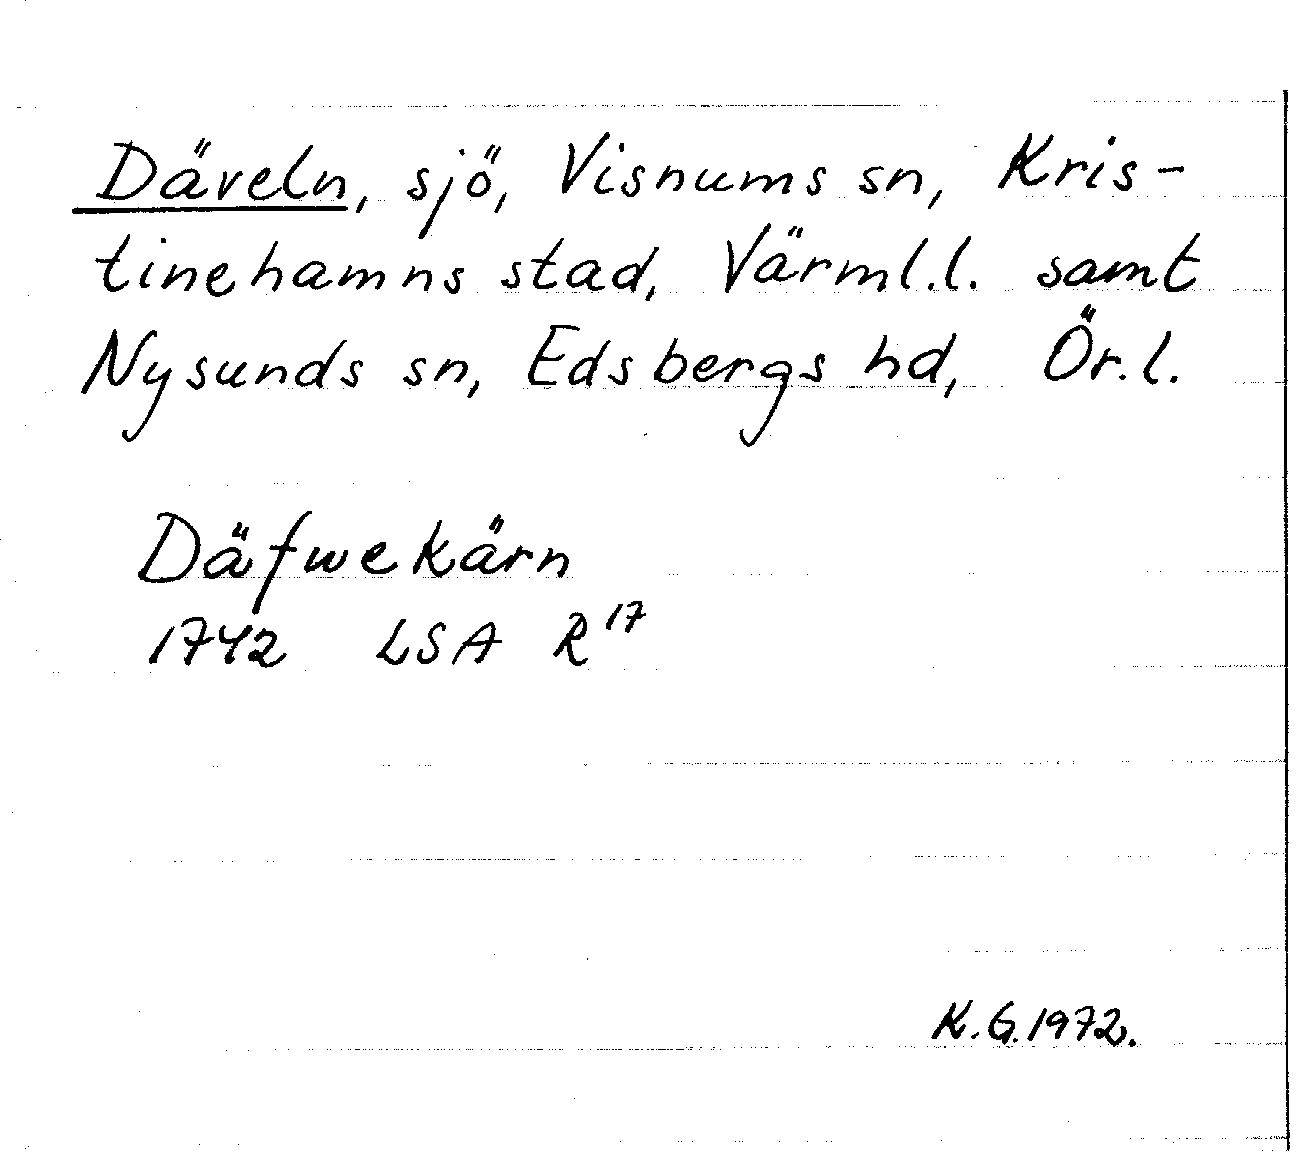 Däveln, sjö, Visnums sn, Kris-
tinehamns stad, Värml.l. samt
Nysunds sn, Edsbergs hd, Ör.l.
Däfwekärn
1742 LSA R¹⁷
K.G.1972.